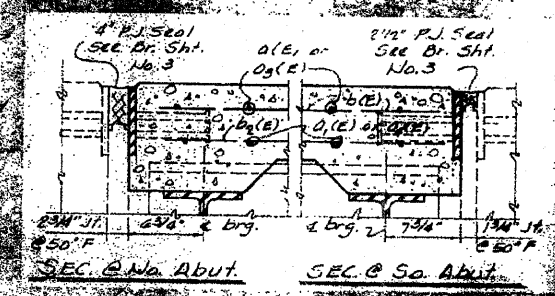 4" P.J. Seal
See Br. Sht.
No. 3
a(E) or
a3(E)
2½" P.J. Seal
See Br. Sht.
No. 3
b(E)
b2(E)
a1(E) or
2¾" Jt.
@ 50° F
6¾"
¢ brg.
¢ brg.
7¾"
1¾" Jt.
@ 50° F
SEC @ No. Abut.
SEC. @ So. Abut.